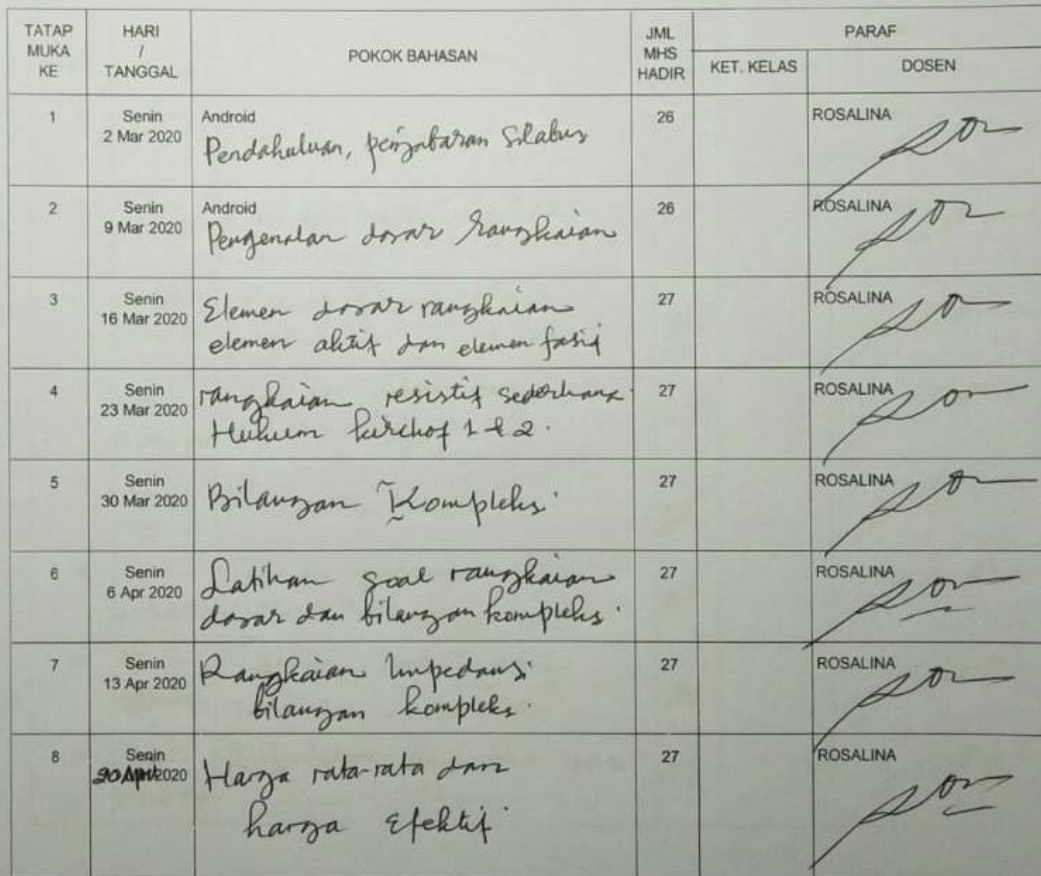 TATAP MUKA KE
HARI / TANGGAL
POKOK BAHASAN
JML MHS HADIR
PARAF
KET. KELAS
DOSEN
1
Senin
2 Mar 2020
Android
Pendahuluan, penjabaran Silabus
26
ROSALINA
2
Senin
9 Mar 2020
Android
Pengenalan dasar Rangkaian
26
ROSALINA
3
Senin
16 Mar 2020
Elemen dasar rangkaian
elemen aktif dan elemen fasif
27
ROSALINA
4
Senin
23 Mar 2020
rangkaian resistif sederhana
Hukum kirchof 1 & 2.
27
ROSALINA
5
Senin
30 Mar 2020
Bilangan Kompleks
27
ROSALINA
6
Senin
6 Apr 2020
Latihan soal rangkaian
dasar dan bilangan kompleks.
27
ROSALINA
7
Senin
13 Apr 2020
Rangkaian Impedansi
bilangan kompleks.
27
ROSALINA
8
Senin
20 Apr 2020
Harga rata-rata dan
harga Efektif
27
ROSALINA